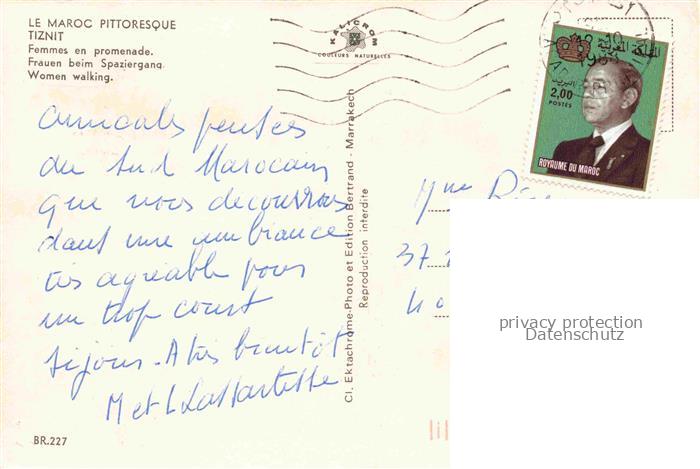 LE MAROC PITTORESQUE
TIZNIT
Femmes en promenade.
Frauen beim Spaziergang.
Women walking.
KALICROM
COULEURS NATURELLES
المملكة المغربية
البريد
2,00
POSTES
ROYAUME DU MAROC
Amicales pensées
du Sud Marocain
que nous découvrons
dans une ambiance
très agréable pour
un trop court
séjour. A très bientôt
M et L
Cl. Ektachrome-Photo et Edition Bertrand - Marrakech
Reproduction interdite
Mme
37
BR.227
privacy protection
Datenschutz